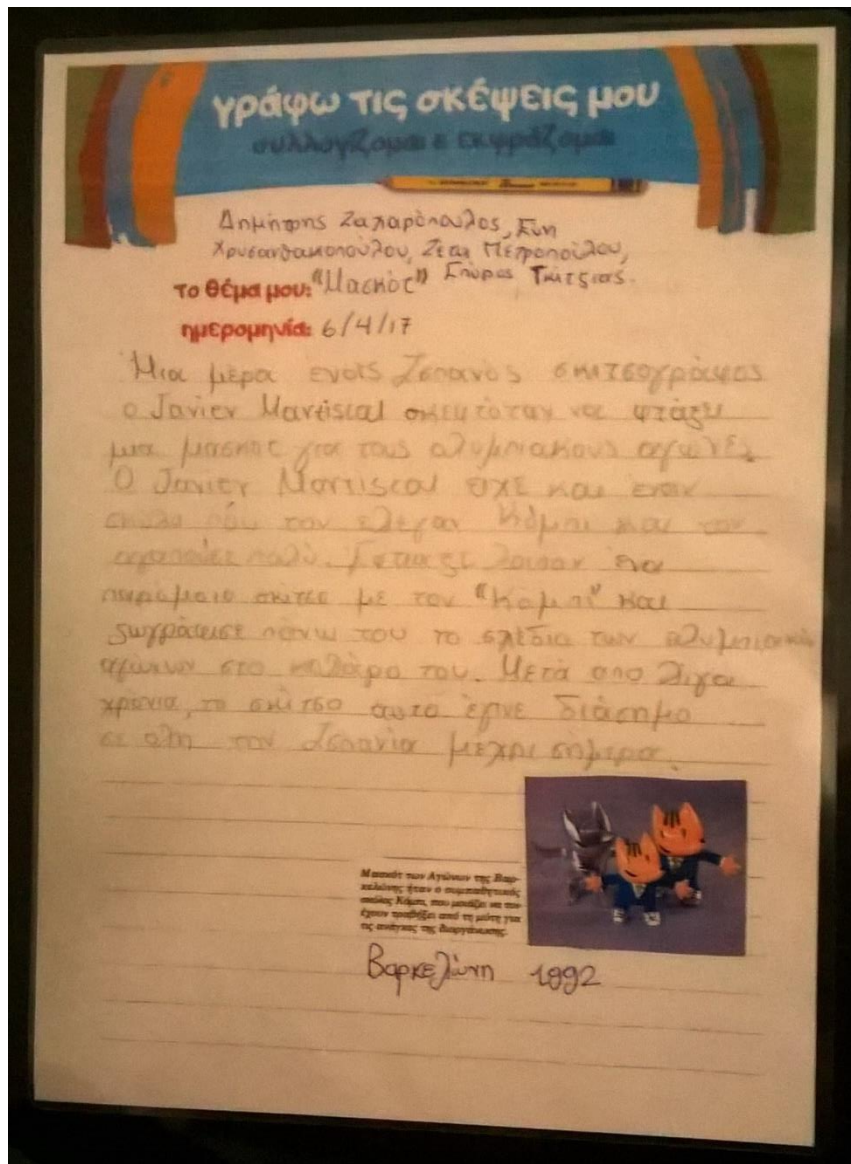 γράφω τις σκέψεις μου
συλλογίζομαι & εκφράζομαι
Δημήτρης Ζαχαρόπουλος, Εύη
Χρυσανθακοπούλου, Ζέτα Πετροπούλου,
το θέμα μου: "Μασκότ" Σπύρος Γκίτζιας.
ημερομηνία: 6/4/17
Μια μέρα ενας Ισπανός σκιτσογράφος
ο Javier Martiscal σκεφτόταν να φτιάξει
μια μασκότ για τους ολυμπιακους αγωνες.
Ο Javier Martiscal ειχε και εναν
σκύλο που τον ελεγαν Κόμπι και τον
αγαπούσε πολύ. Εφτιαξε λοιπον ένα
παρόμοιο σκιτσο με τον "Κομπι" και
ζωγράφισε πάνω του το σχέδιο των ολυμπιακών
αγώνων στο κολάρο του. Μετά απο λίγα
χρόνια, το σκίτσο αυτο έγινε διάσημο
σε ολη την Ισπανία μέχρι σήμερα.
Μασκότ των Αγώνων της Βαρ-
κελώνης ήταν ο συμπαθητικός
σκύλος Κόμπι, που μοιάζει να τον
έχουν τραβήξει από τη μύτη για
τις ανάγκες της διοργάνωσης.
Βαρκελώνη 1992